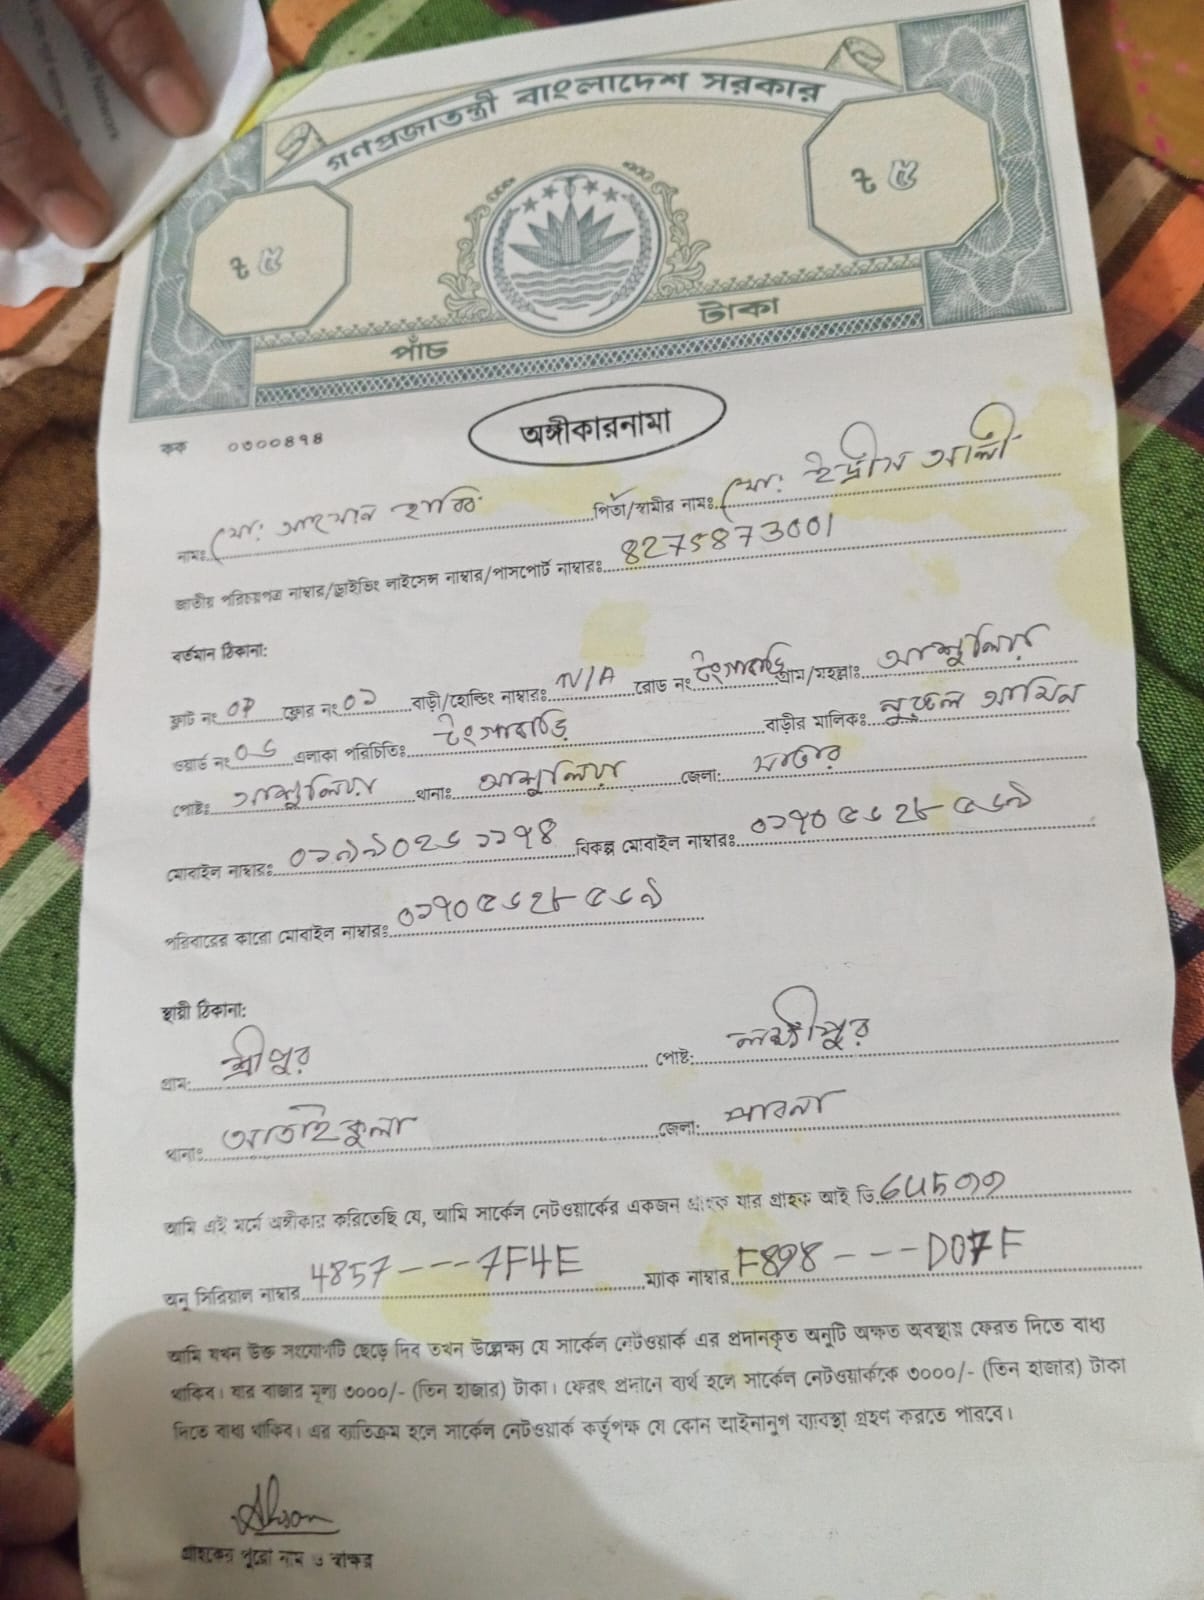 গণপ্রজাতন্ত্রী বাংলাদেশ সরকার
৳ ৫
৳ ৫
পাঁচ টাকা
কক ০৩০০৪৭৪
অঙ্গীকারনামা
নামঃ মো: আহসান হাবিব পিতা/স্বামীর নামঃ মো: ইদ্রীস আলী
জাতীয় পরিচয়পত্র নাম্বার/ড্রাইভিং লাইসেন্স নাম্বার/পাসপোর্ট নাম্বারঃ 8275873001
বর্তমান ঠিকানা:
ফ্লাট নং ০৭ ফ্লোর নং ০১ বাড়ী/হোল্ডিং নাম্বারঃ N/A রোড নং টংগাবাড়ি গ্রাম/মহল্লাঃ আশুলিয়া
ওয়ার্ড নং ০৬ এলাকা পরিচিতিঃ টংগাবাড়ি বাড়ীর মালিকঃ নুরুল আমিন
পোষ্টঃ আশুলিয়া থানাঃ আশুলিয়া জেলা: সাভার
মোবাইল নাম্বারঃ ০১৯৯০২৬১১৭৪ বিকল্প মোবাইল নাম্বারঃ ০১৭০৫৬২৮৫৬৯
পরিবারের কারো মোবাইল নাম্বারঃ ০১৭০৫৬২৮৫৬৯
স্থায়ী ঠিকানা:
গ্রাম: শ্রীপুর পোষ্ট: লক্ষীপুর
থানাঃ আতাইকুলা জেলা: পাবনা
আমি এই মর্মে অঙ্গীকার করিতেছি যে, আমি সার্কেল নেটওয়ার্কের একজন গ্রাহক যার গ্রাহক আই ডি
অনু সিরিয়াল নাম্বার 4857---7F4E ম্যাক নাম্বার F898---D07F
আমি যখন উক্ত সংযোগটি ছেড়ে দিব তখন উল্লেক্ষ্য যে সার্কেল নেটওয়ার্ক এর প্রদানকৃত অনুটি অক্ষত অবস্থায় ফেরত দিতে বাধ্য
থাকিব। যার বাজার মূল্য ৩০০০/- (তিন হাজার) টাকা। ফেরৎ প্রদানে ব্যর্থ হলে সার্কেল নেটওয়ার্ককে ৩০০০/- (তিন হাজার) টাকা
দিতে বাধ্য থাকিব। এর ব্যতিক্রম হলে সার্কেল নেটওয়ার্ক কর্তৃপক্ষ যে কোন আইনানুগ ব্যাবস্থা গ্রহণ করতে পারবে।
Ahsan
গ্রাহকের পুরো নাম ও স্বাক্ষর